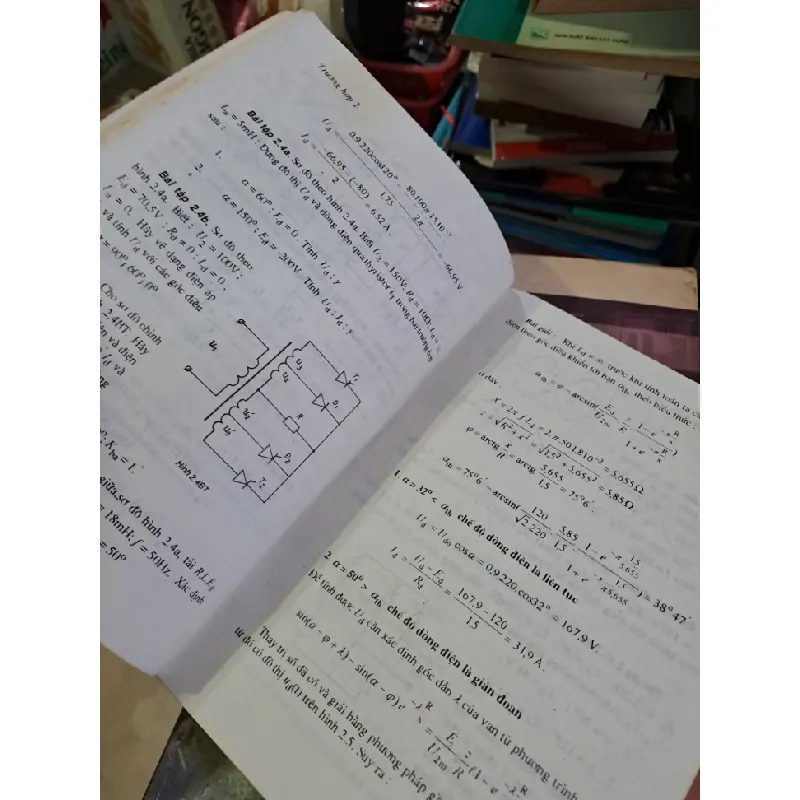 Trường hợp 2
U_d = 0,9.220cos120° - 80.100π.18.10⁻³ / 2π = -66,95 V
1,75
I_d = -66,95 - (-80) / 2 = 6,52A.
Bài tập 2.4a. Sơ đồ theo hình 2.4a. Biết U₂ = 150V; R_d = 10Ω;
= 5mH; Dựng đồ thị U_d và dòng điện qua thyristor T₁ trong hai trường hợp
sau :
1. α = 60° ; E_d = 0 : Tính U_d ; γ
2. α = 150° ; E_d = -200V. Tính U_d ; I_d ; γ.
Bài tập 2.4b. Sơ đồ theo
hình 2.4a. Biết : U₂ = 100V;
E_d = 70,5V ; R_d = 0 ; L_d = 0,
= 0. Hãy vẽ dạng điện áp
và tính U_d với các góc điều
90°; 60°; 0°
Cho sơ đồ chỉnh
2.4BT. Hãy
và điện
I_d và
u₁
u₂
u₂
u₂'
u₂'
T₁
D₁
R
D₂
T₂
Hình 2.4BT
= 1.
giữa sơ đồ hình 2.4a, tải RLE_d
= 18mH; f = 50Hz. Xác định
= 50°
Bài giải : Khi L_d = ∞ trước khi tính toán ta
điện theo góc điều khiển tới hạn α_th theo biểu thức :
α_th = φ - arcsin(E_d / U_2m . Z / R . 1 - e^(-π R/X) / 1 + e^(-π R/X))
ở đây :
X = 2π f L_d = 2.π.50.18.10⁻³ = 5,655Ω
Z = √R² + X² = √1,5² + 5,655² = 5,85Ω
φ = arctg X / R = arctg 5,655 / 1,5 = 75°6'.
α_th = 75°6' - arcsin(120 / √2.220 . 5,85 / 1,5 . 1 - e^(-π 1,5/5,655) / 1 + e^(-π 1,5/5,655)) = 38°47'
1. α = 32° < α_th chế độ dòng điện là liên tục
U_d = U_do cosα = 0,9.220.cos32° = 167,9V.
I_d = U_d - E_d / R_d = 167,9 - 120 / 1,5 = 31,9A.
2. α = 50° > α_th chế độ dòng điện là gián đoạn
Để tính được U_d cần xác định góc dẫn λ của van từ phương trình
sin(α - φ + λ) - sin(α - φ) e^(-λ R/X) = E_d / U_2m . Z / R (1 - e^(-λ R/X)
Thay trị số đã có và giải bằng phương pháp
từ đó có đồ thị u_d(t) trên hình 2.5. Suy ra :